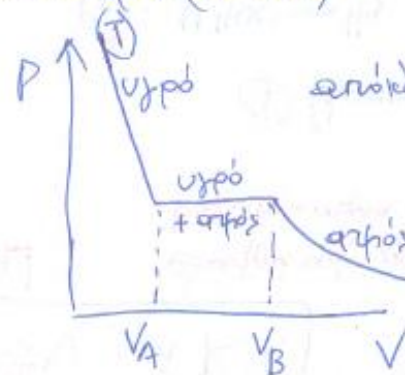 T
P
υγρό
υγρό
+ ατμός
ατμός
V_A V_B V